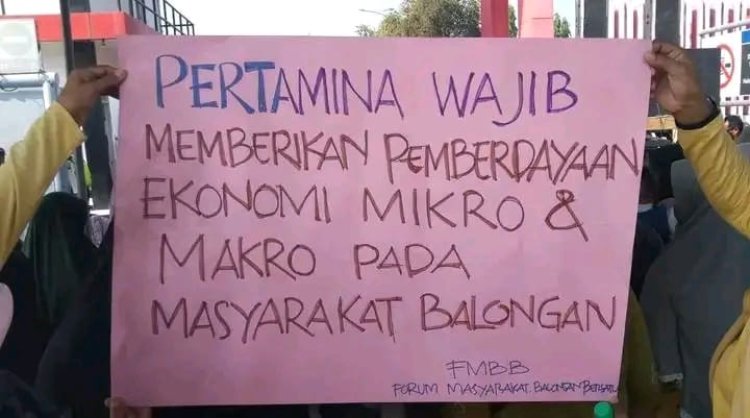 PERTAMINA WAJIB
MEMBERIKAN PEMBERDAYAAN
EKONOMI MIKRO &
MAKRO PADA
MASYARAKAT BALONGAN
FMBB
FORUM MASYARAKAT BALONGAN BERSATU